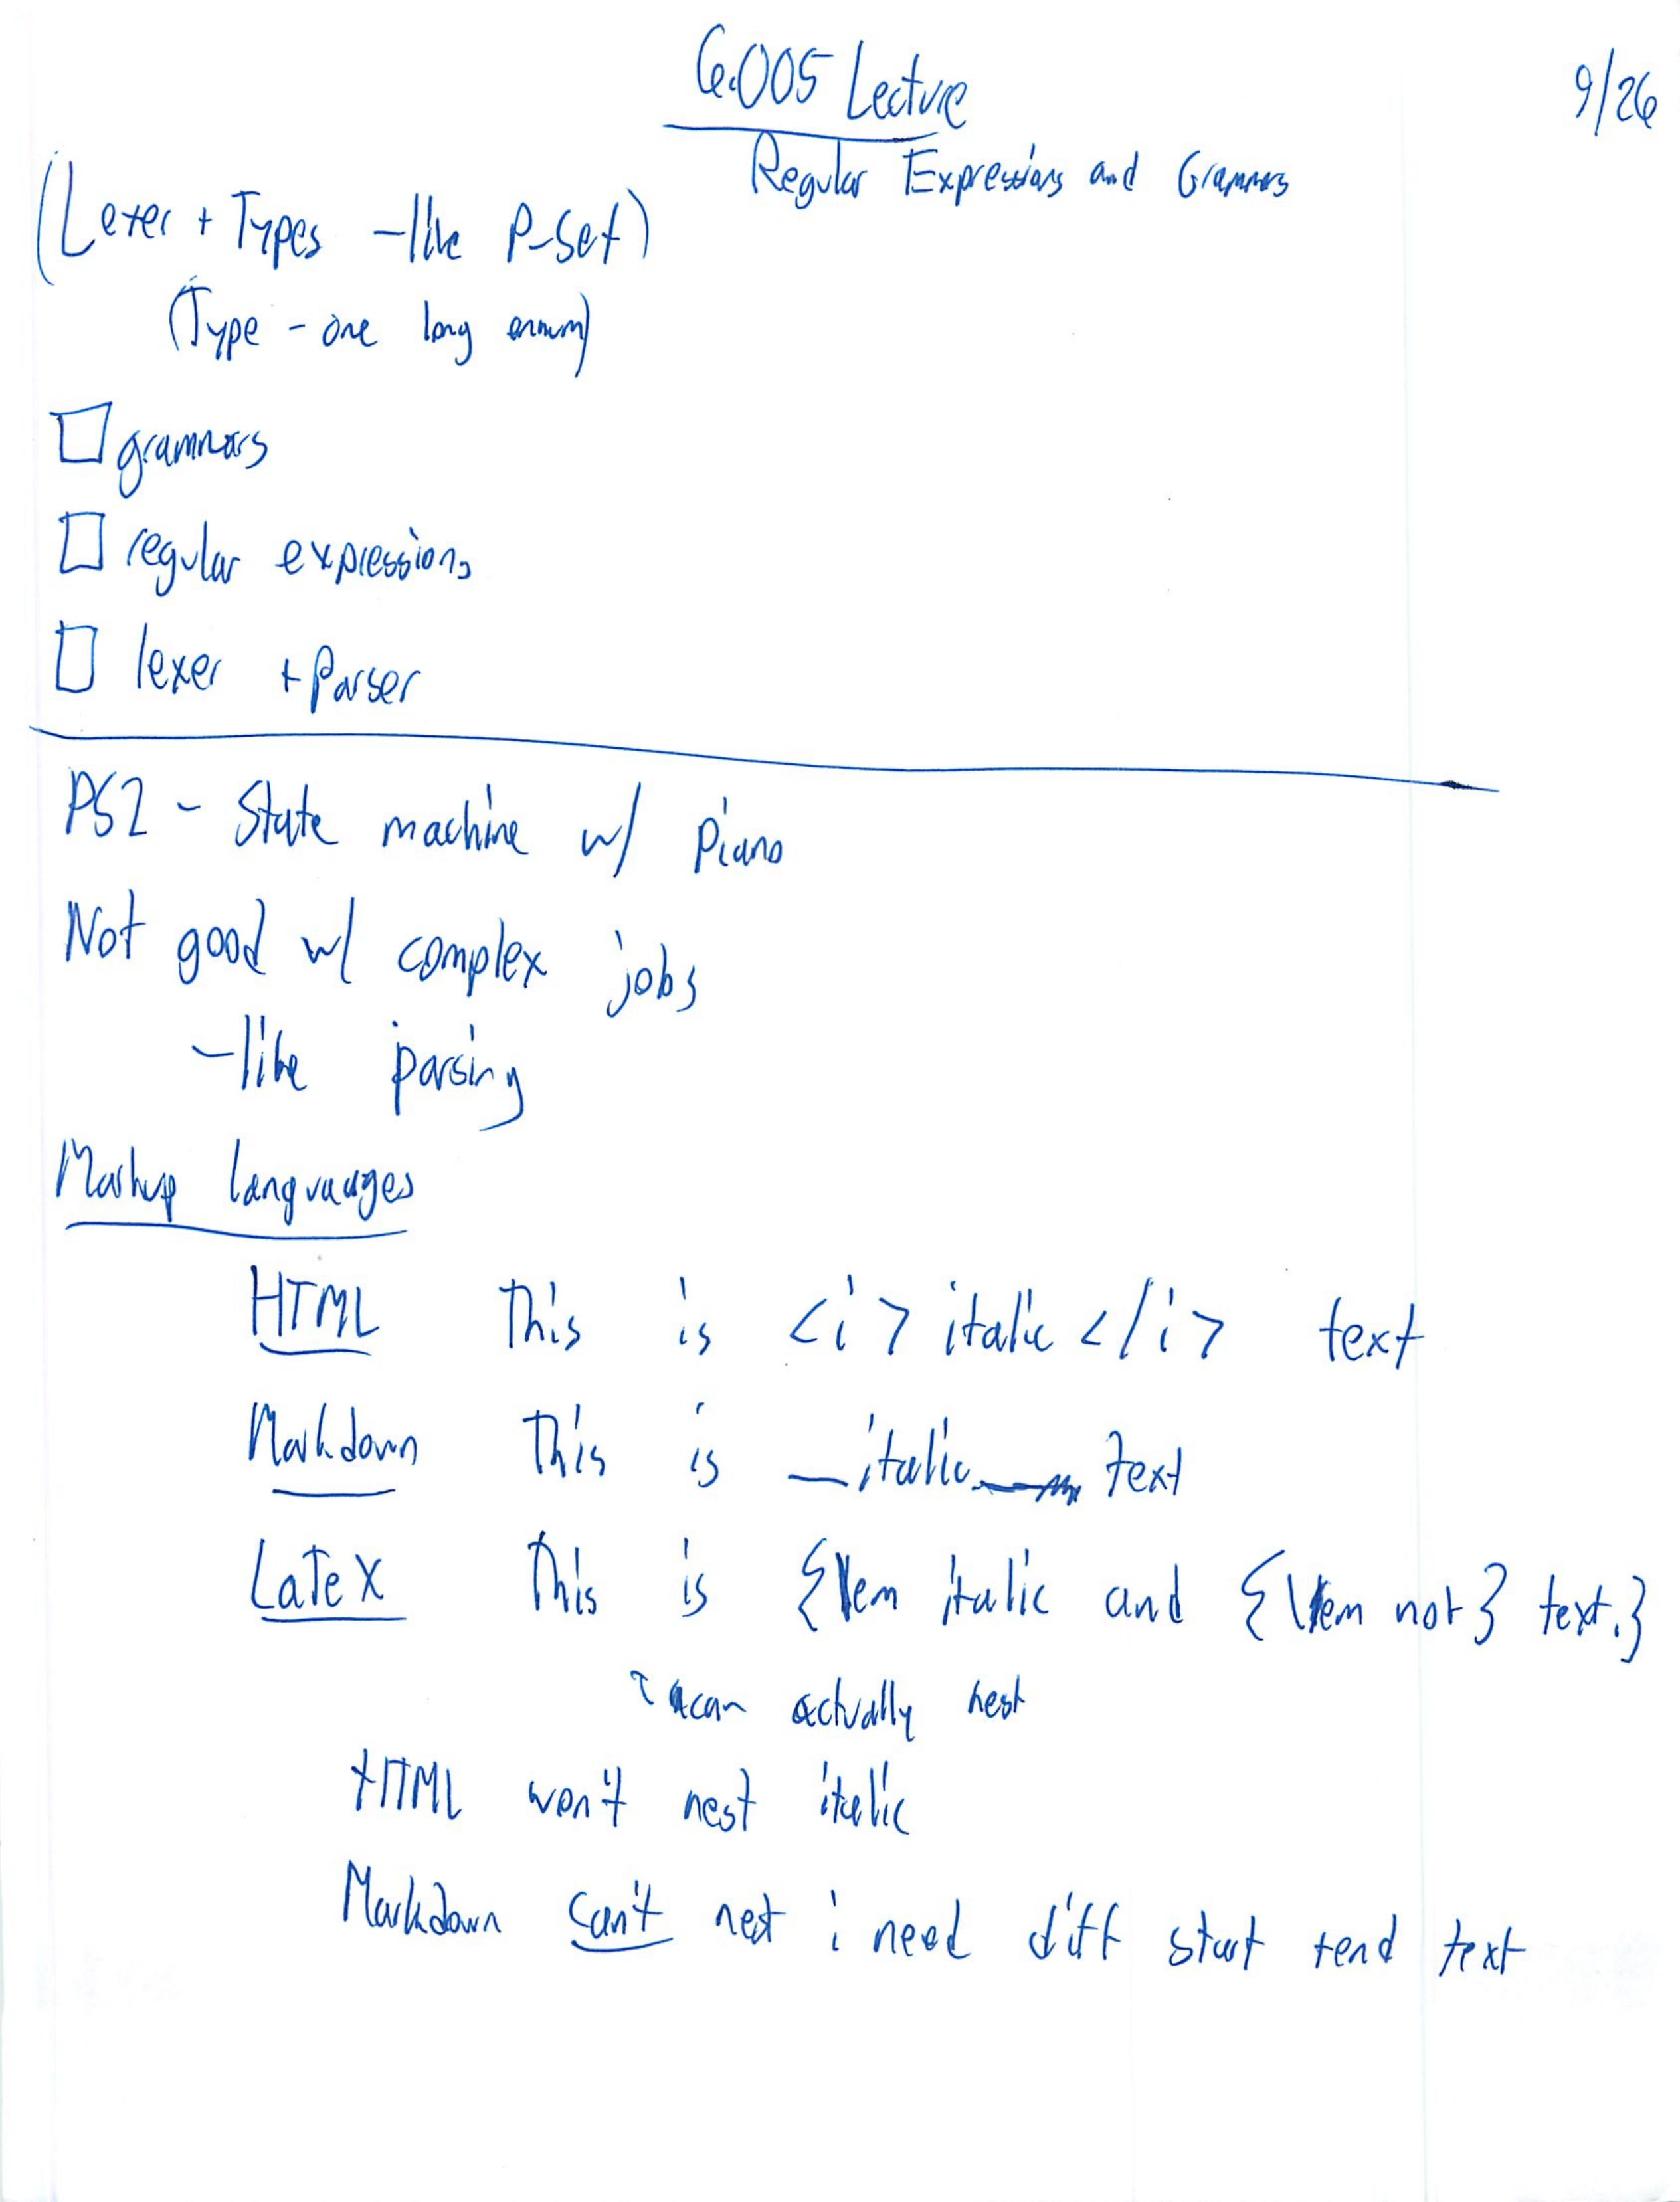 6.005 Lecture
9/26
Regular Expressions and Grammars
(Lexer + Types - like P-set)
(Type - one long enum)
grammars
regular expressions
lexer + Parser
PS2 - State machine w/ Piano
Not good w/ complex jobs
- like parsing
Markup languuages
HTML This is <i> italic </i> text
Markdown This is _italic_ text
LaTeX This is {\em italic and {\em not} text.}
↑ can actually nest
HTML won't nest italic
Markdown can't nest ; need diff start + end text